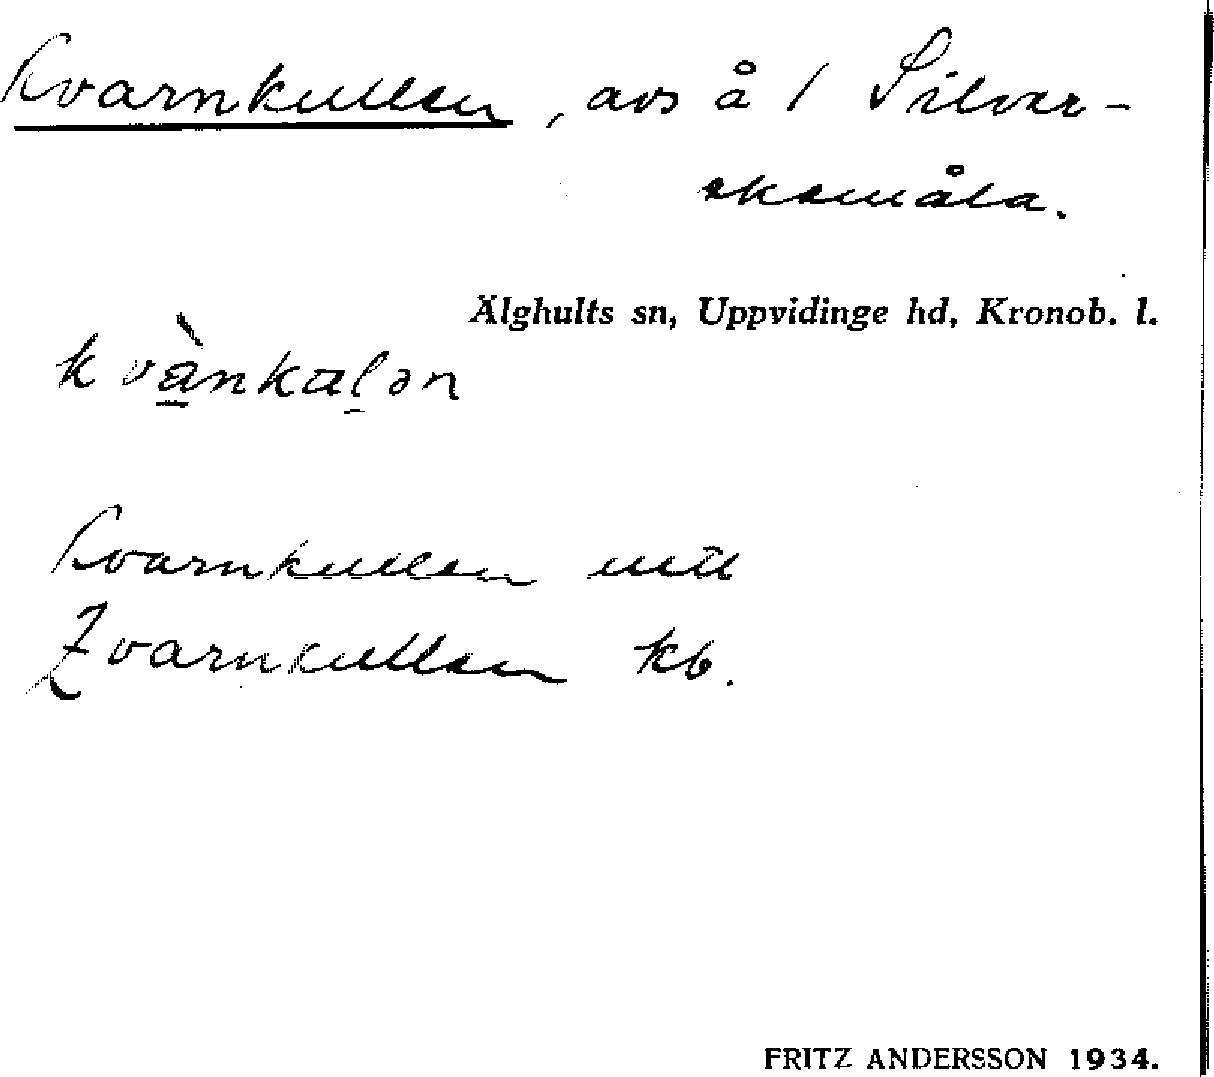 Kvarnkullen, avs å / Silver-
eksmåla.
Älghults sn, Uppvidinge hd, Kronob. l.
kvànkalən
Kvarnkullen mtl
Qvarnkullen kb.
FRITZ ANDERSSON 1934.